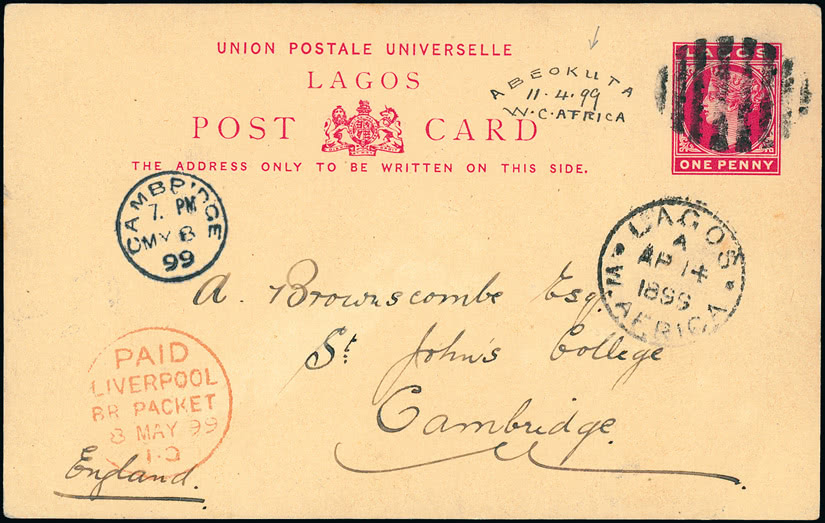 UNION POSTALE UNIVERSELLE
LAGOS
POST CARD
THE ADDRESS ONLY TO BE WRITTEN ON THIS SIDE.
ABEOKUTA
11·4·99
W·C·AFRICA
LAGOS
ONE PENNY
CAMBRIDGE
7. PM
MY 8
99
LAGOS
A
AP 14
1899
W. AFRICA
A. Brownscombe Esq.
St. John's College
Cambridge.
England.
PAID
LIVERPOOL
BR PACKET
8 MAY 99